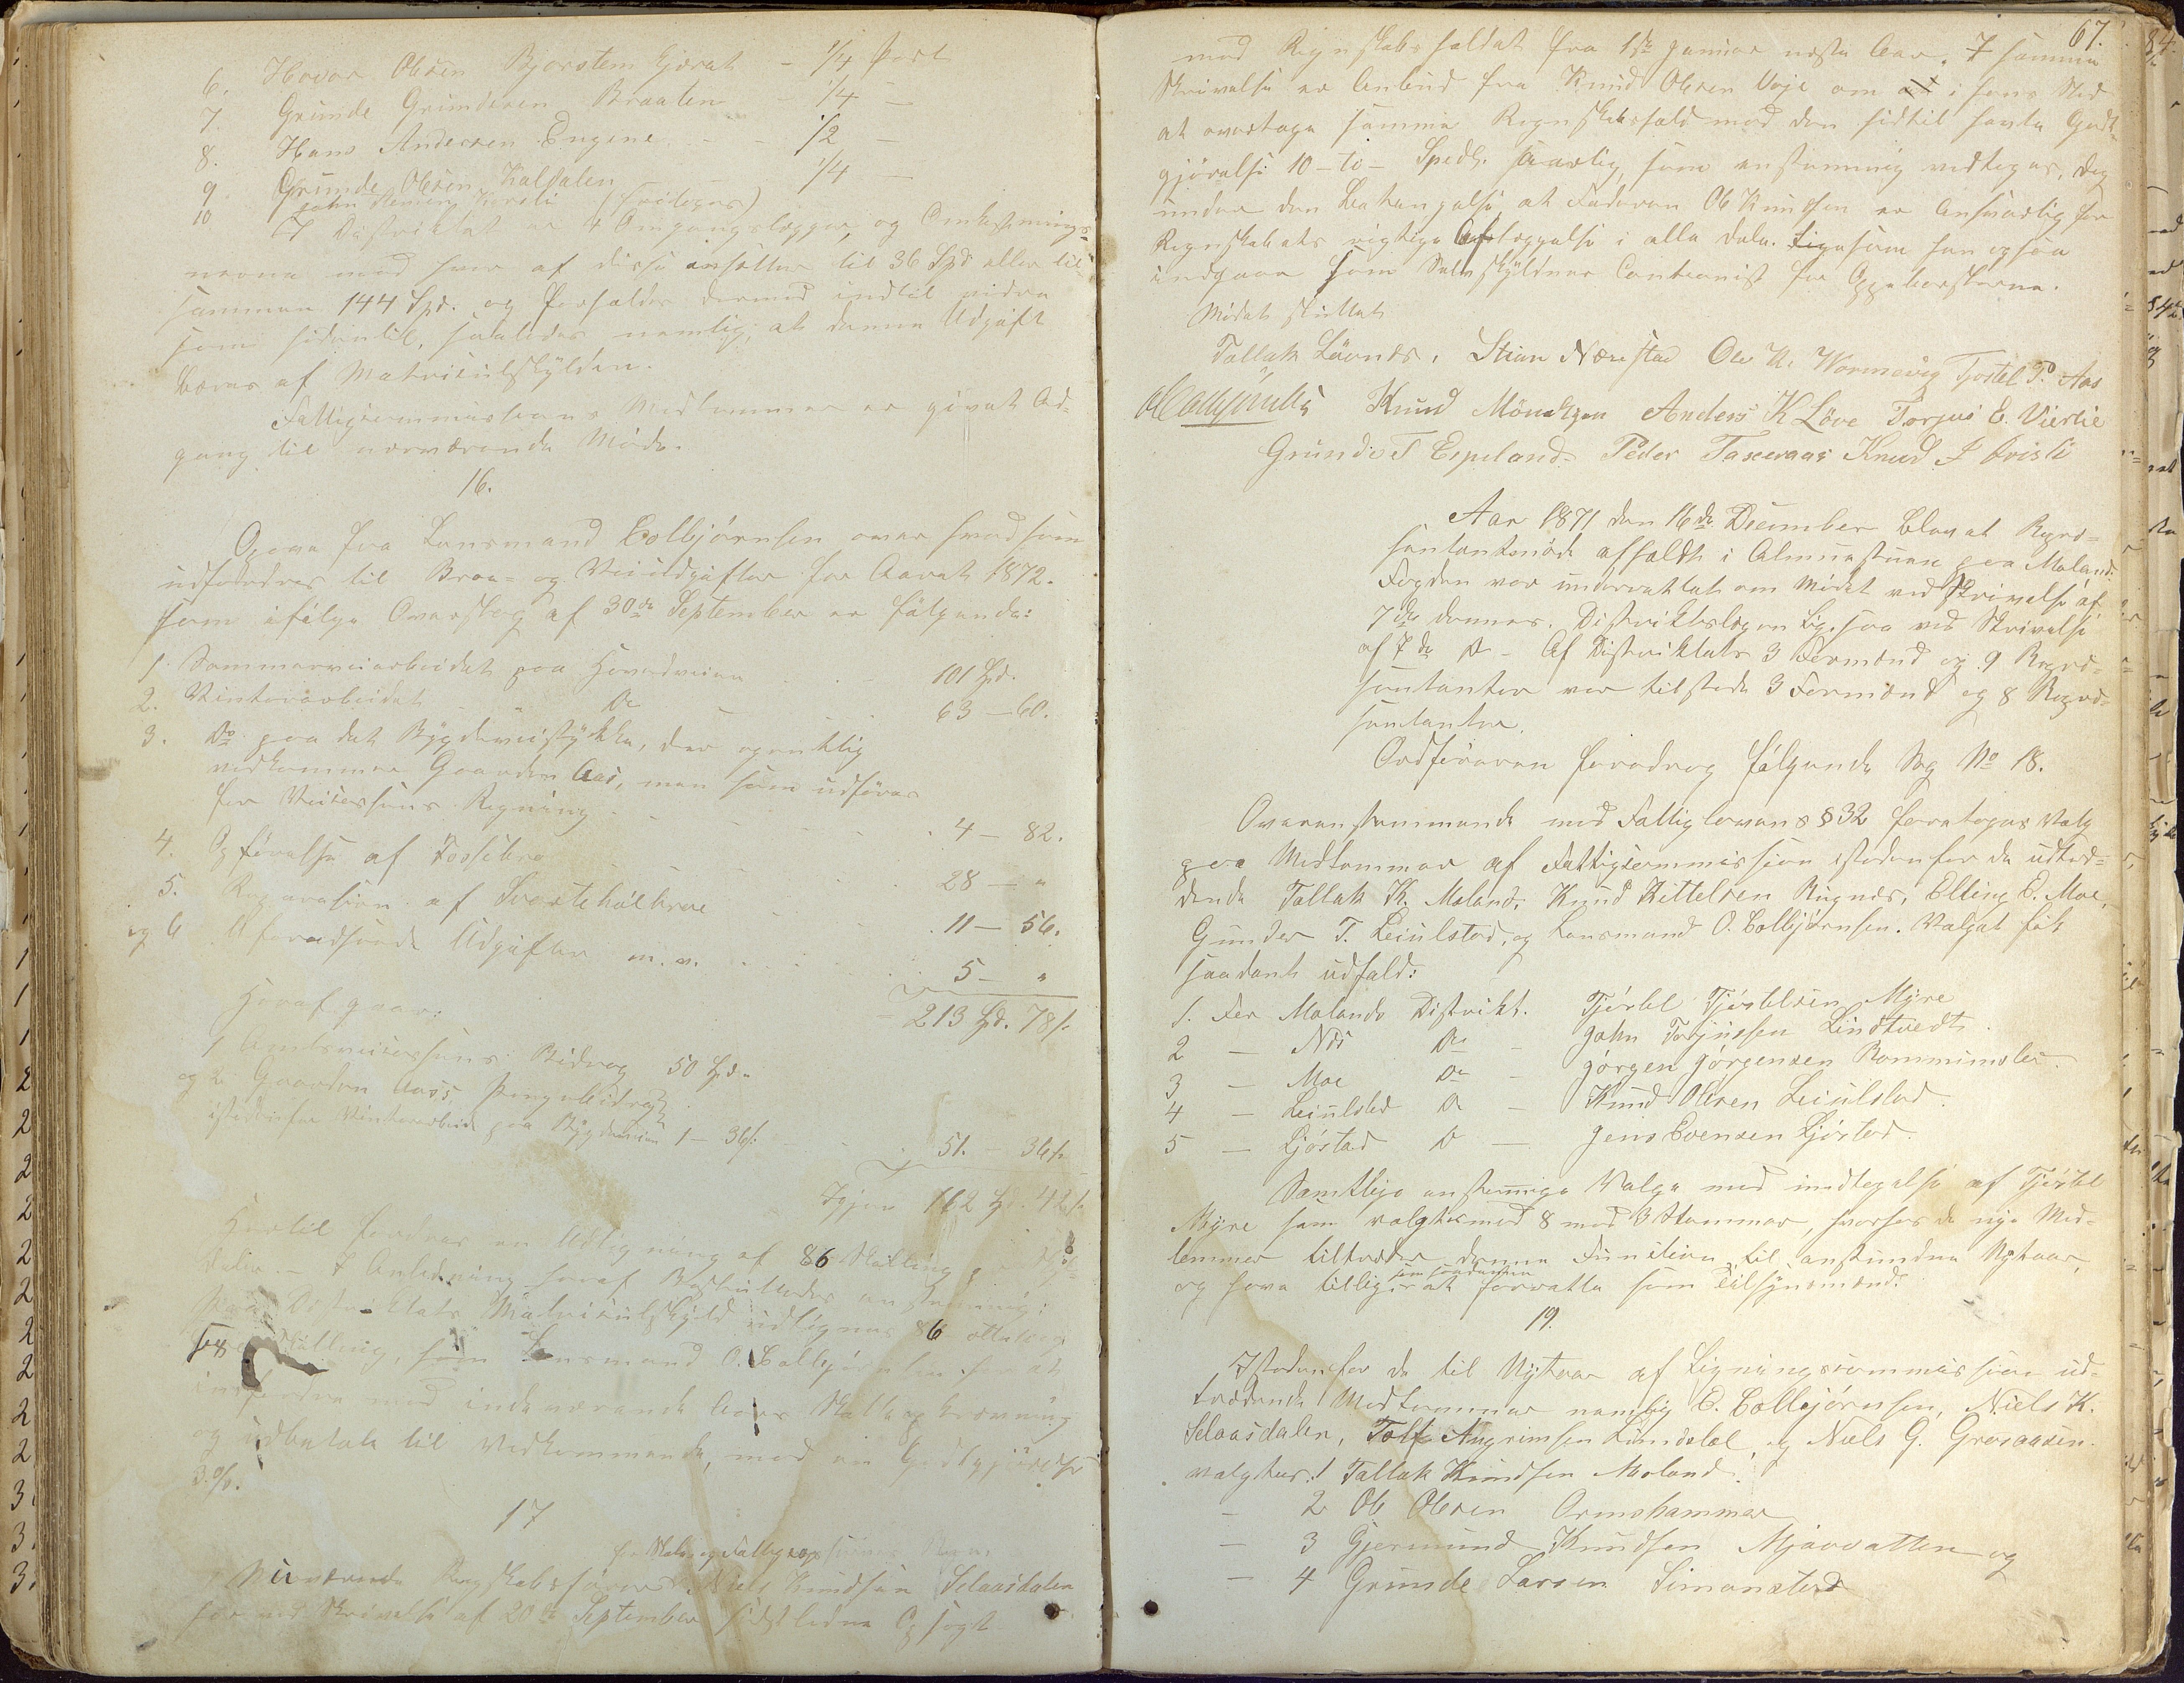 6. Hovor Olsen Bjorstem Gjerat - 1/4 Fort
7. Grunde Grundesen Braaten - 1/4 —
8. Hans Andersen Engene - - 1/2 —
9. Grunde Olsen Kaldalen 1/4 —
10 John
I Distriktet er 4 Omgangslægger, og Omkostnings-
nerne med hver af disse ansættes til 36 Spd eller til-
sammen 144 Spd. og forholdes dermed indtil videre
som hidentil, saaledes nemlig, at denne Udgift
bæres af Matriculskylden.
Fattigcommissionens Medlemmer er givet Ad-
gang til nærværende Møde.
16.
Opgave fra Lensmand Colbjørnsen over hvad som
udfordres til Broe- og Veiudgifter for Aaret 1872.
som ifølge Overslag af 30de September er følgende:
1. Sommerveiarbeidet paa Hovedveien - - 101 Spd.
2. Vinterarbeidet - „ Do - - 63 — 60.
3. Do paa det Bygdeveistykke, der egentlig
vedkommer Gaarden Aas, men som udføres
for Veicassens Regning - - - 4 — 82.
4. Opførelse af Fossebro - - - 28 — „
5. Reparasion af Svartehølbroe - - 11 — 56.
og 6 Uforudseede Udgifter m. v. - - 5 — „
213 Spd. 78 s.
Heraf gaar:
1 Amtsveicassens Bidrag 50 Spd. „
og 2 Gaarden Aas's Pengebidrag
istedenfor Vinterarbeide paa Bygdeveien 1 — 36 s. - 51. — 36 s.
Igjen 162 Spd. 42 s.
Hertil fordres en Udligning af 86 Skilling
daler. — I Anledning heraf Besluttedes enstemmig:
Paa Distriktets Matriculskyld udlignes 86 otteti
sex Skilling, som Lensmand O. Colbjørnsen har at
indfordre med indeværende Aars Skatteopkrævning
og udbetale til Vedkommende, mod en Godtgjørelse
3 %.
17
for Skole og Fattig
Nuværende Regnskabsfører Niels Knudsen Selaasdalen
har ved Skrivelse af 20de September sidstleden Opsagt
67.
med Regnskabsholdet fra 1ste Januar neste Aar. I samme
Skrivelse er Anbud fra Knud Olsen Voje om i hans Sted
at overtage samme Regnskabshold mod den hidtil havte Godt-
gjørelse 10 - ti - Spedlr. aarlig, som enstemmig vedtoges, dog
under den Betingelse at Faderen Ole Knudsen er Ansvarlig for
Regnskabets rigtige Aflæggelse i alle dele. Ligesom han ogsaa
indgaar som Selvskyldner Cautionist for Oppebørslerne.
Mødet sluttet
Tallak Løvnes, Stian Nærestad Ole K. Wormevig Tjøstel T. Aas
Knud Mönekgen Anders K Löve Torjus E. Vierlie
Grunde T Espeland Peder Taxeraas Knud J
Aar 1871 den 16de December blev et Repræ-
sentantmøde afholdt i Almuestuen paa Moland.
Fogden var underrettet om Mødet ved Skrivelse af
7de dennes. Distriktslægen Ligesaa ved Skrivelse
af 7de Do - Af Distriktets 3 Formænd og 9 Repræ-
sentanter var tilstede 3 Formænd og 8 Repræ-
sentanter.
Ordføreren foredrog følgende Sag No 18.
Overensstemmende med Fattiglovens § 32 foretoges Valg
paa Medlemmer af Fattigcommission istedenfor de udtræ-
dende Tallak K. Moland, Knud Kittelsen Rugnes, Elling E. Moe,
Gunder T. Leiulstad, og Lensmand O. Colbjørnsen. Valget fik
saadant udfald:
1. For Molands Distrikt. Tjøstel Tjøstelsen Myre
2 — Nes Do — John Torjussen Lindtvedt
3 — Moe Do — Jørgen Jørgensen Rommimslie
4 — Leiulstad Do — Knud Olsen Leiulstad
5 — Ljøstad Do — Jens Evensen Ljøstad.
Samtlige enstemmige Valge med undtagelse af Tjøstel
Myre som valgtes med 8 mod 3 Stemmer, hvorfor de nye Med-
lemmer tiltræder denne Function til anstundene Nytaar,
og have tillige som saadanne at forrette som Tilsynsmænd.
19.
Istedenfor de til Nytaar af Ligningscommissionen ud-
trædende Medlemmer nemlig O. Colbjørnsen, Niels K.
Selaasdalen, Tolf Angrimsen Lundelæl, og Niels G. Gresaasen.
valgtes: 1 Tallak Knudsen Moland
- 2 Ole Olsen Ormshammer
— 3 Gjermund Knudsen Mjaavatten og
— 4 Grunde Larsen Simonstad